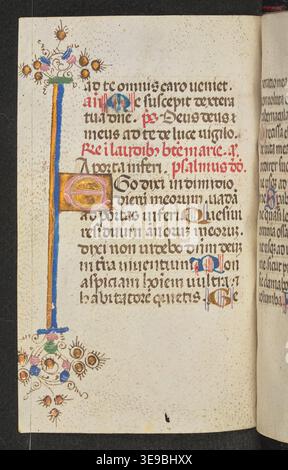 ad te omnis caro veniet.
añ Me suscepit dextera
tua dñe. ps Deus deus
meus ad te de luce vigilo.
Re i laudib; bte marie. a.
A porta inferi. psalmus dd.
EGo dixi in dimidio
dierũ meorum vadã
ad portas inferi Quesivi
residuum annorum meorum.
dixi non videbo dñm deũ
in terra viventium Non
aspiciam hoiem ultra: t
habitatorẽ quietis Ge
alamy
a
3E9BHXX